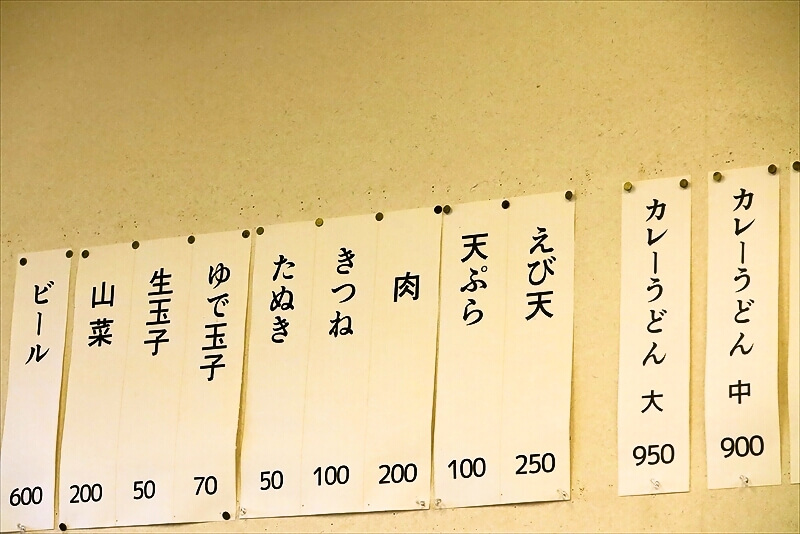 カレーうどん 中 900
カレーうどん 大 950
えび天 250
天ぷら 100
肉 200
きつね 100
たぬき 50
ゆで玉子 70
生玉子 50
山菜 200
ビール 600